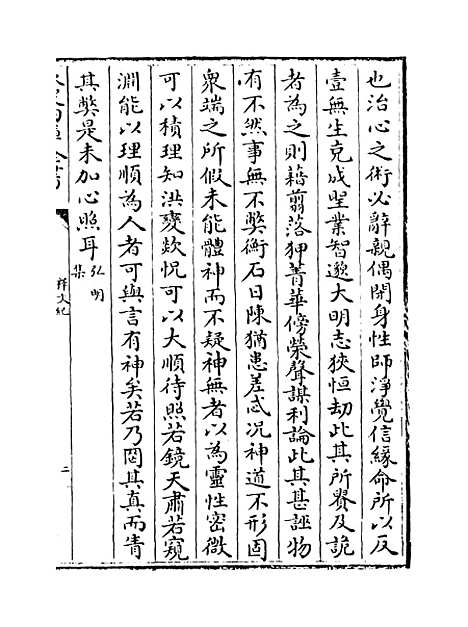 也治心之術必辭親偶閉身性師淨覺信緣命所以反
壹無生克成聖業智邈大明志狹恒劫此其所貴及詭
者為之則藉髮落狎菁華傍榮聲謀利論此其甚誣物
有不然事無不弊衡石日陳猶患差忒况神道不形固
衆端之所假未能體神而不疑神無者以為靈性密微
可以積理知洪變欻怳可以大順待照若鏡天肅若窺
淵能以理順為人者可與言有神矣若乃罔其真而眚
其弊是未加心照耳弘明
集
釋文紀
二